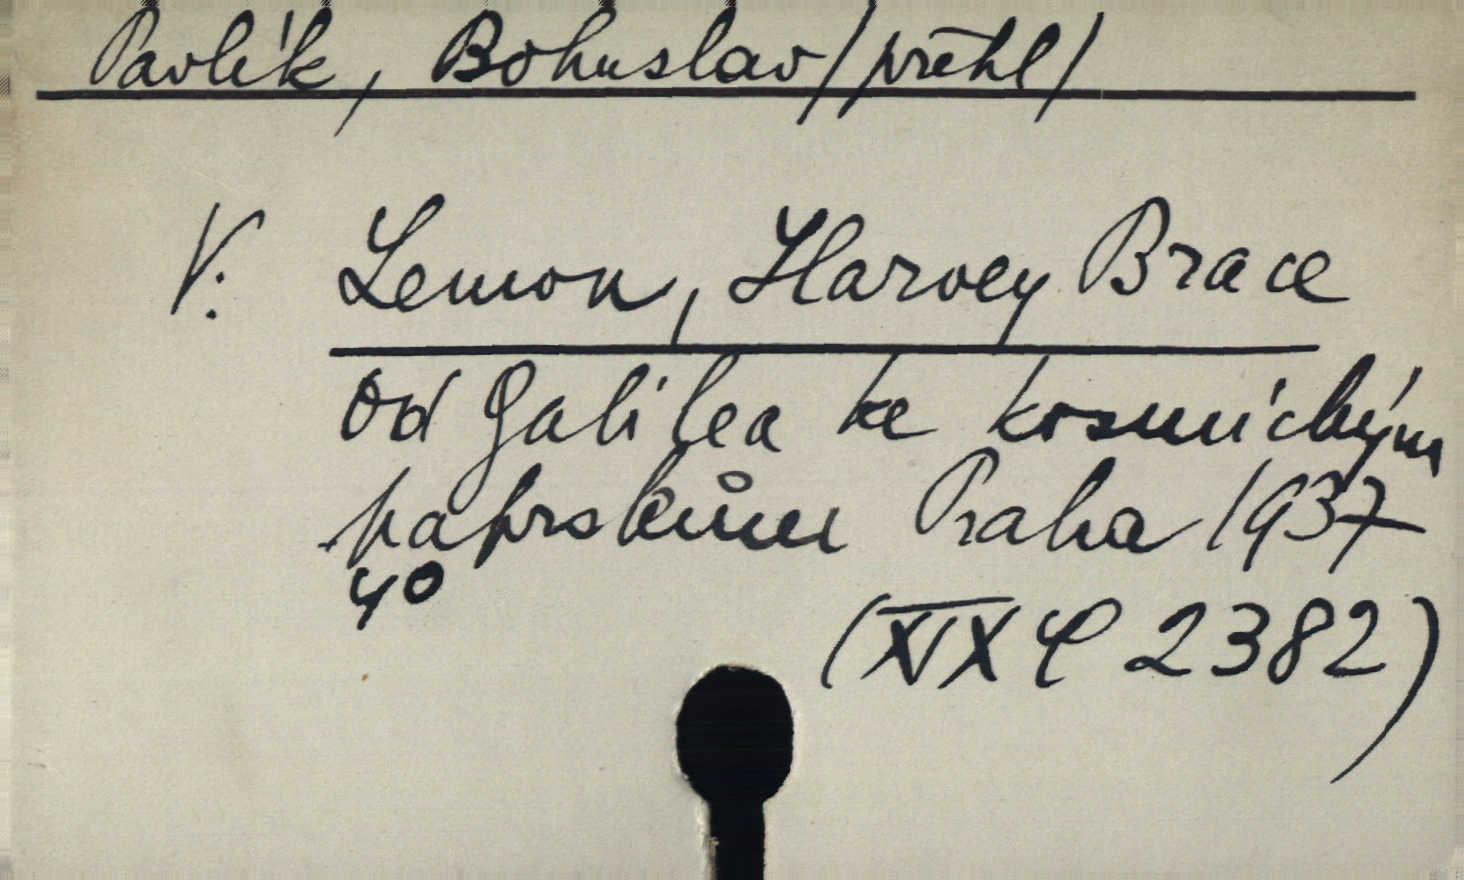 Pavlík, Bohuslav /přehl/
V. Lemon, Harvey Brace
Od Galilea ke kosmickým
paprskům Praha 1937
4°
(XIX C 2382)